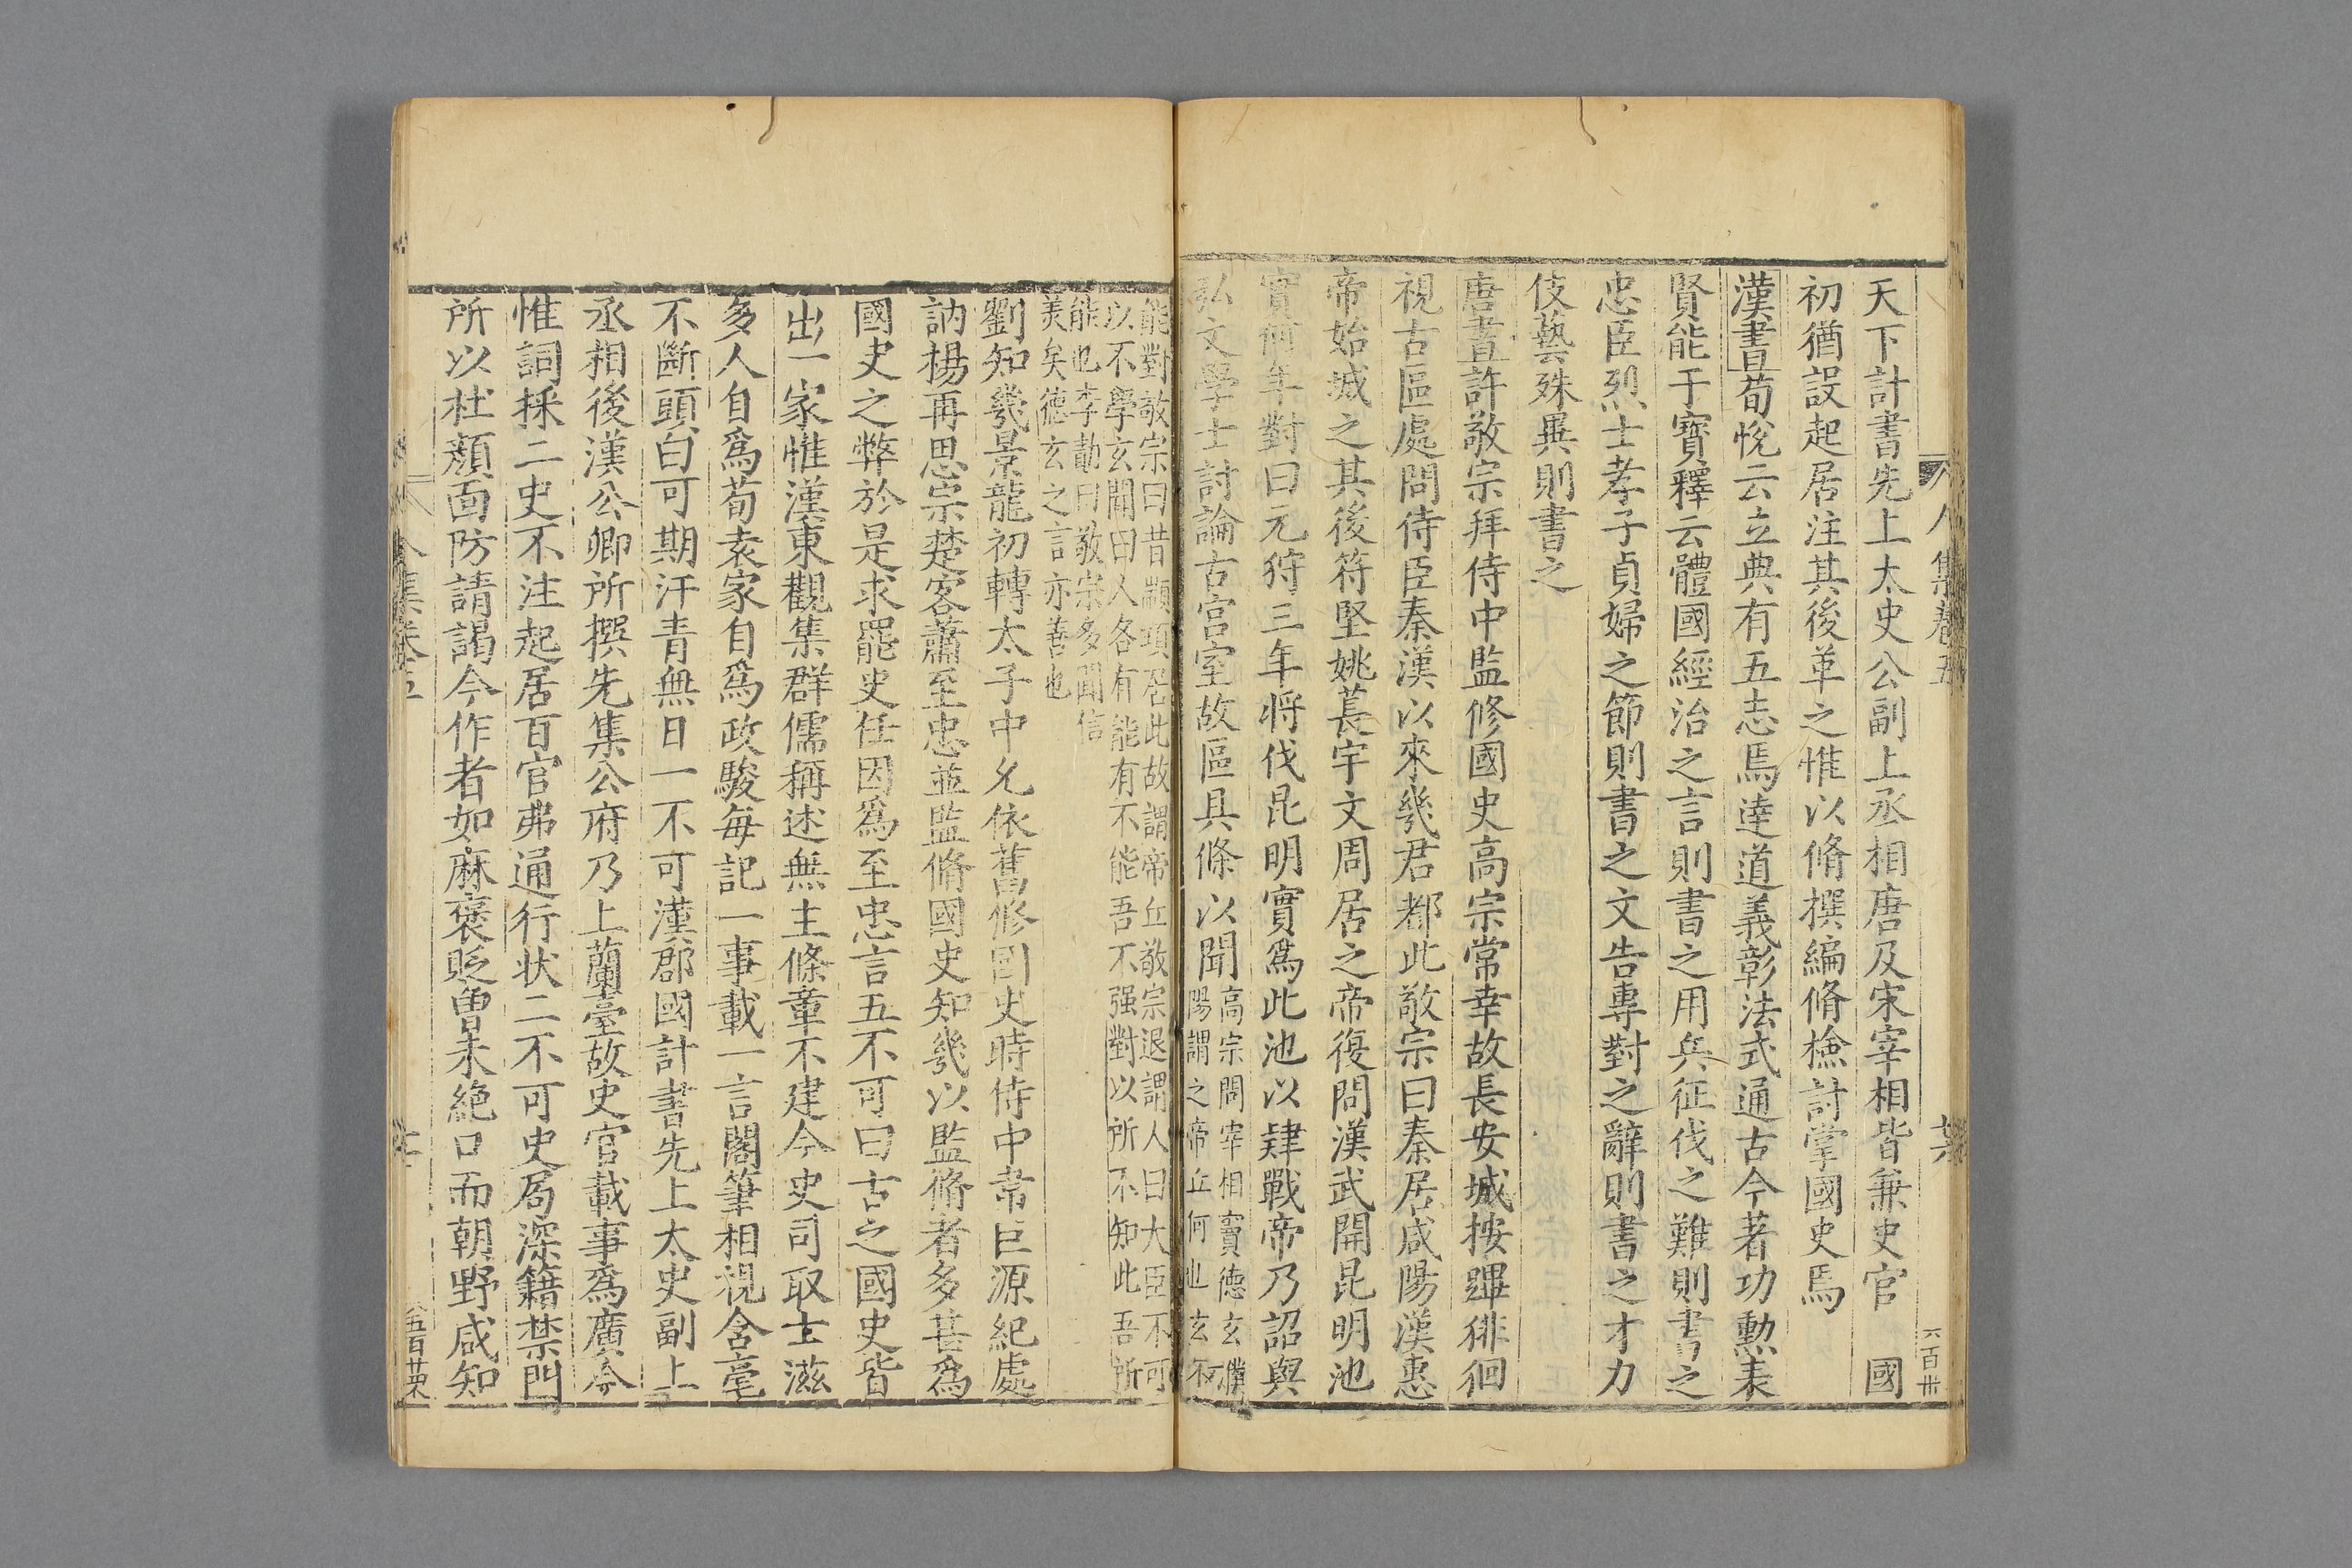 天下計書先上太史公副上丞相唐及宋宰相皆兼史官 國
初猶設起居注其後革之惟以脩撰編脩檢討掌國史焉
漢書荀悅云立典有五志焉達道義彰法式通古今著功勳表
賢能于寶釋云體國經治之言則書之用兵征伐之難則書之
忠臣烈士孝子貞婦之節則書之文告專對之辭則書之才力
伎藝殊異則書之
唐書許敬宗拜侍中監修國史高宗常幸故長安城按蹕徘徊
視古區處問侍臣秦漢以來幾君都此敬宗曰秦居咸陽漢惠
帝始城之其後符堅姚萇宇文周居之帝復問漢武開昆明池
實何年對曰元狩三年將伐昆明實為此池以肄戰帝乃詔與
弘文學士討論古宮室故區具條以聞
高宗問宰相竇德玄濮
陽謂之帝丘何也玄不
能對敬宗曰昔顓頊居此故謂帝丘敬宗退謂人曰大臣不可
以不學玄聞曰人各有能有不能吾不强對以所不知此吾所
能也李勣曰敬宗多聞信
美矣德玄之言亦善也
劉知幾景龍初轉太子中允依舊修國史時侍中韋巨源紀處
訥楊再思宗楚客蕭至忠並監脩國史知幾以監脩者多甚為
國史之弊於是求罷史任因為至忠言五不可曰古之國史皆
出一家惟漢東觀集群儒稱述無主條章不建今史司取士滋
多人自為荀袁家自為政駿每記一事載一言閣筆相視含毫
不斷頭白可期汗青無日一不可漢郡國計書先上太史副上
丞相後漢公卿所撰先集公府乃上蘭臺故史官載事為廣今
惟詞採二史不注起居百官弗通行状二不可史局深籍禁門
所以杜顏面防請謁今作者如麻褒貶曾未絶口而朝野咸知